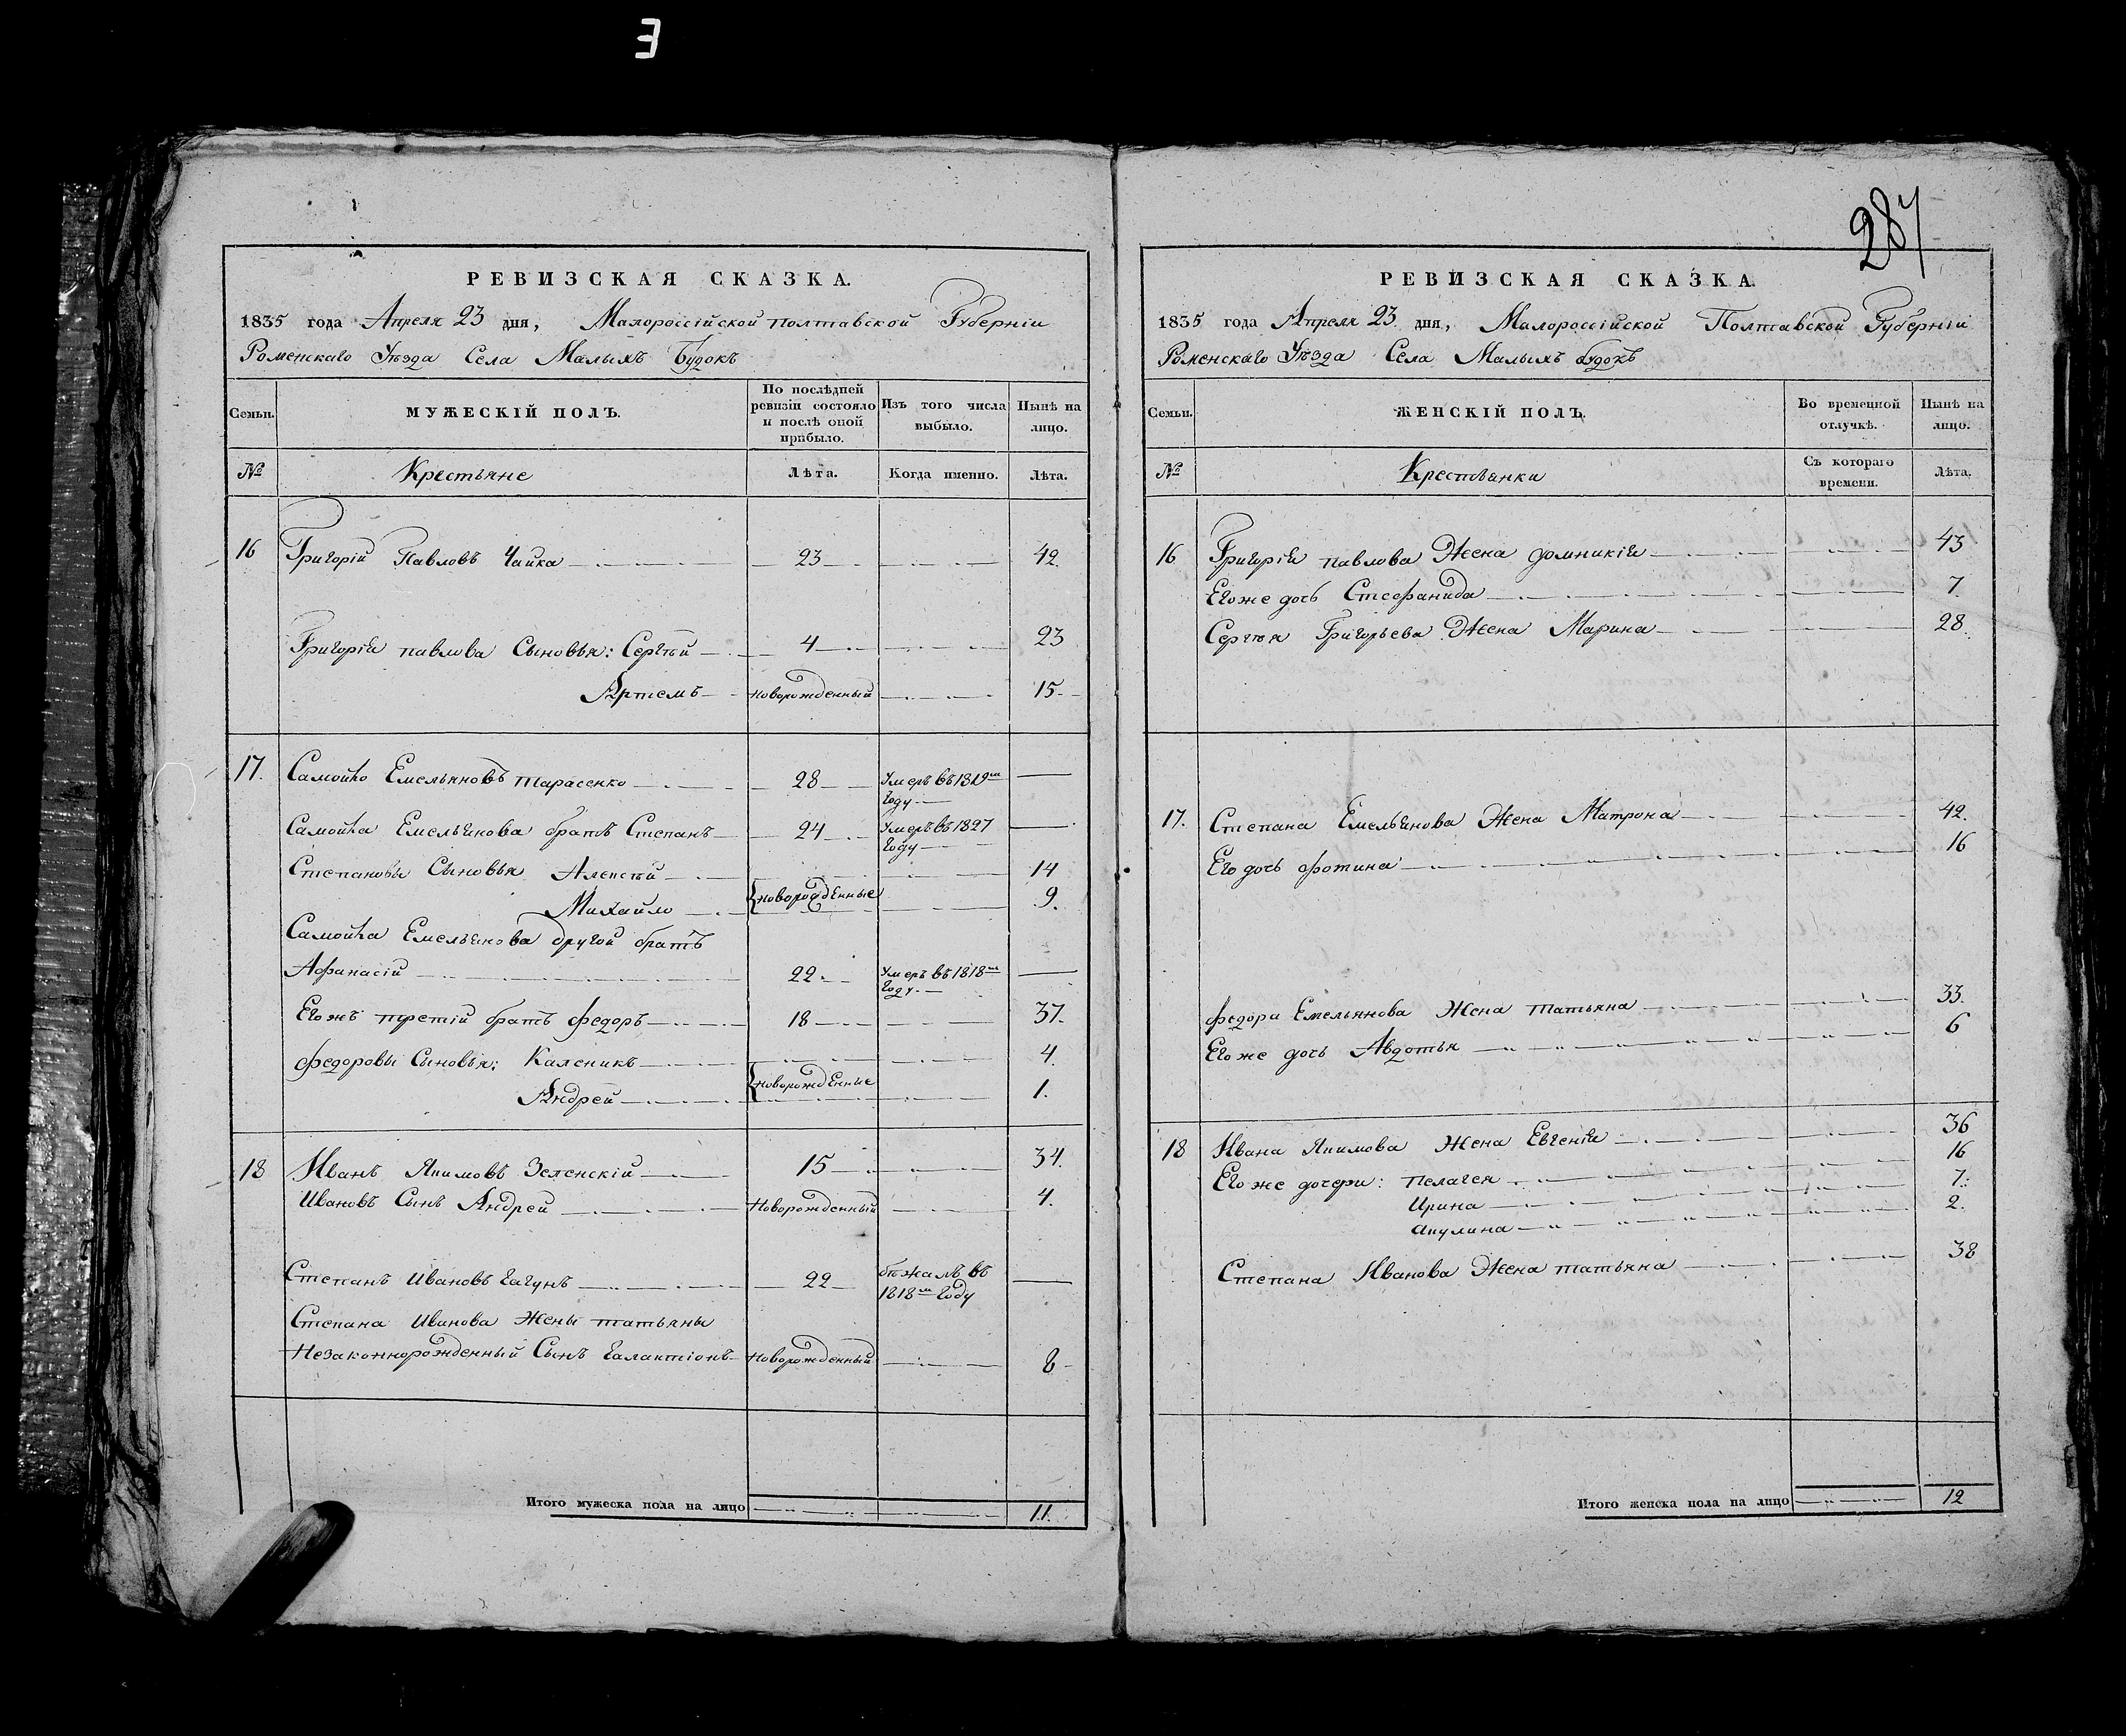 287
РЕВИЗСКАЯ СКАЗКА.
1835 года Апреля 23 дня, Малороссійской полтавской Губерніи
Роменскаго Уѣзда Села Малыхъ Будокъ
Семьи. МУЖЕСКІЙ ПОЛЪ. По послѣдней ревизіи состояло и послѣ оной прибыло. Изъ того числа выбыло. Нынѣ на лицо.
№ Крестьяне Лѣта. Когда именно. Лѣта.
16 Григорій Павловъ Чайка 23 42.
Григорія павлова Сыновья: Сергѣй 4 23
Артемъ новорожденный 15
17. Самойло Емельяновъ тарасенко 28 Умеръ въ 1829м Году
Самойла Емельянова братъ Степанъ 24 Умеръ въ 1827 Году
Степановы Сыновья Алексѣй 14
{новорожденные
Михайло 9.
Самойла Емельянова другой братъ
Афанасій 22. Умеръ въ 1818м Году
Его жъ третій братъ федоръ 18 37.
федоровы Сыновья; Каленикъ 4.
{новорожденные
Андрей 1.
18 Иванъ Якимовъ Зеленскій 15 34.
Ивановъ Сынъ Андрей Новорожденный 4.
Степанъ Ивановъ Гагунъ 22 бѣжалъ въ 1818м Году
Степана Иванова Жены татьяны
Незаконнорожденный Сынъ Галактіонъ Новорожденный 8
Итого мужеска пола на лицо 11.
РЕВИЗСКАЯ СКАЗКА.
1835 года Апреля 23 дня, Малороссійской Полтавской Губерніи
Роменскаго Уѣзда Села Малыхъ будокъ
Семьи. ЖЕНСКІЙ ПОЛЪ. Во временной отлучкѣ. Нынѣ на лицо.
№ Крестьянки Съ котораго времени. Лѣта.
16 Григорія павлова Жена домникія 43
Его же дочь Стефанида 7
Сергѣя Григорьева Жена Марина 28.
17. Степана Емельянова Жена Матрона 42.
Его дочь фотина 16
федора Емельянова Жена татьяна 33.
Его же дочь Авдотья 6
18 Ивана Якимова Жена Евгенія 36
Его же дочери: пелагея 16
Ирина 7.
Акулина 2.
Степана Иванова Жена татьяна 38
Итого женска пола на лицо 12